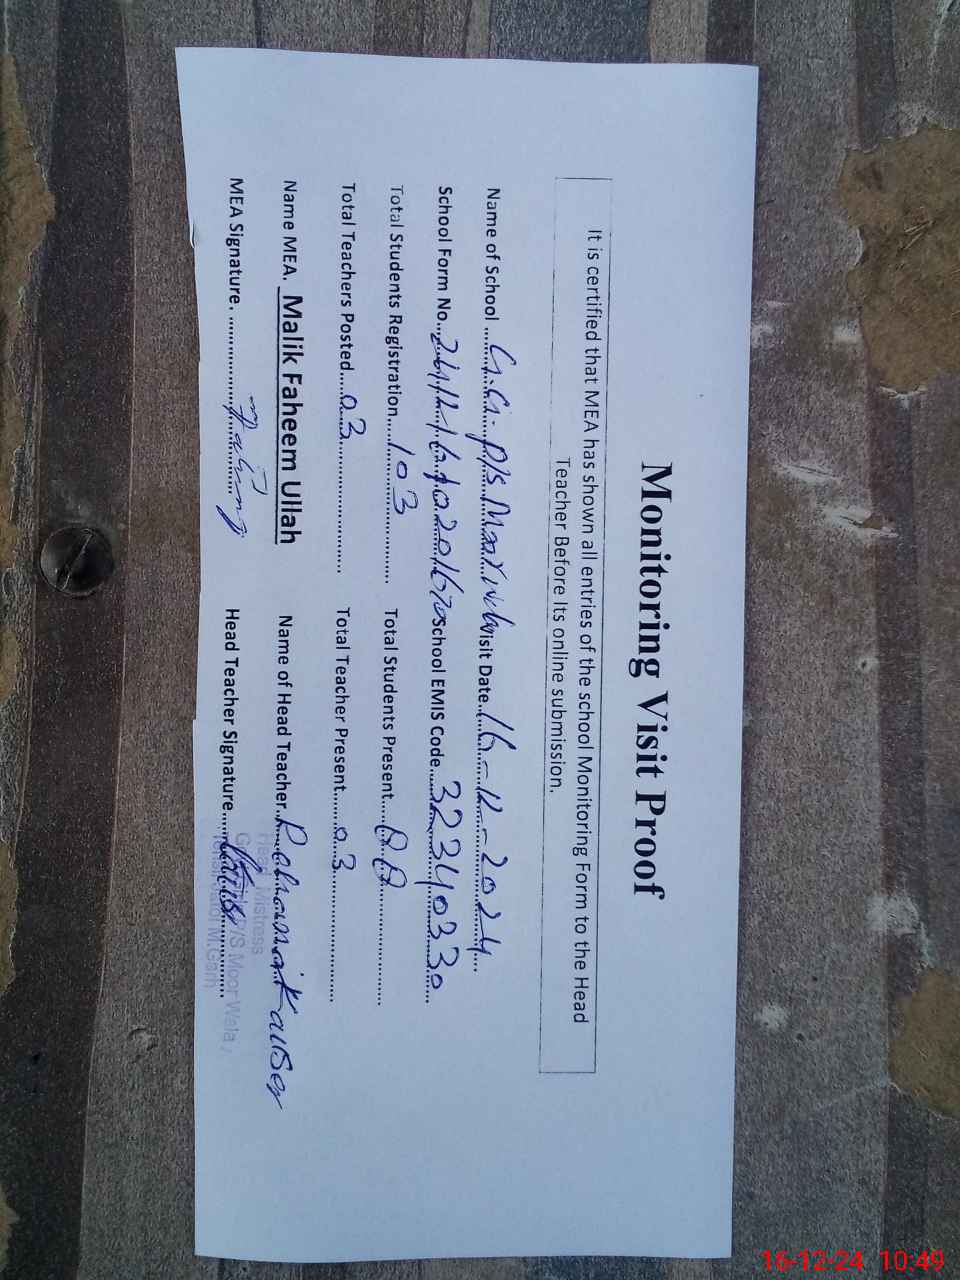 Monitoring Visit Proof
It is certified that MEA has shown all entries of the school Monitoring Form to the Head
Teacher Before Its online submission.
Name of School ... G.G. P/S Visit Date.. 16-12-2024
School Form No... School EMIS Code... 32340330
Total Students Registration..... 103 Total Students Present.....
Total Teachers Posted.... 03 Total Teacher Present..... 03
Name MEA. Malik Faheem Ullah Name of Head Teacher. Kauser
MEA Signature. Head Teacher Signature.
Head Mistress
P/S Moor Wala
M.Garh
16-12-24 10:49